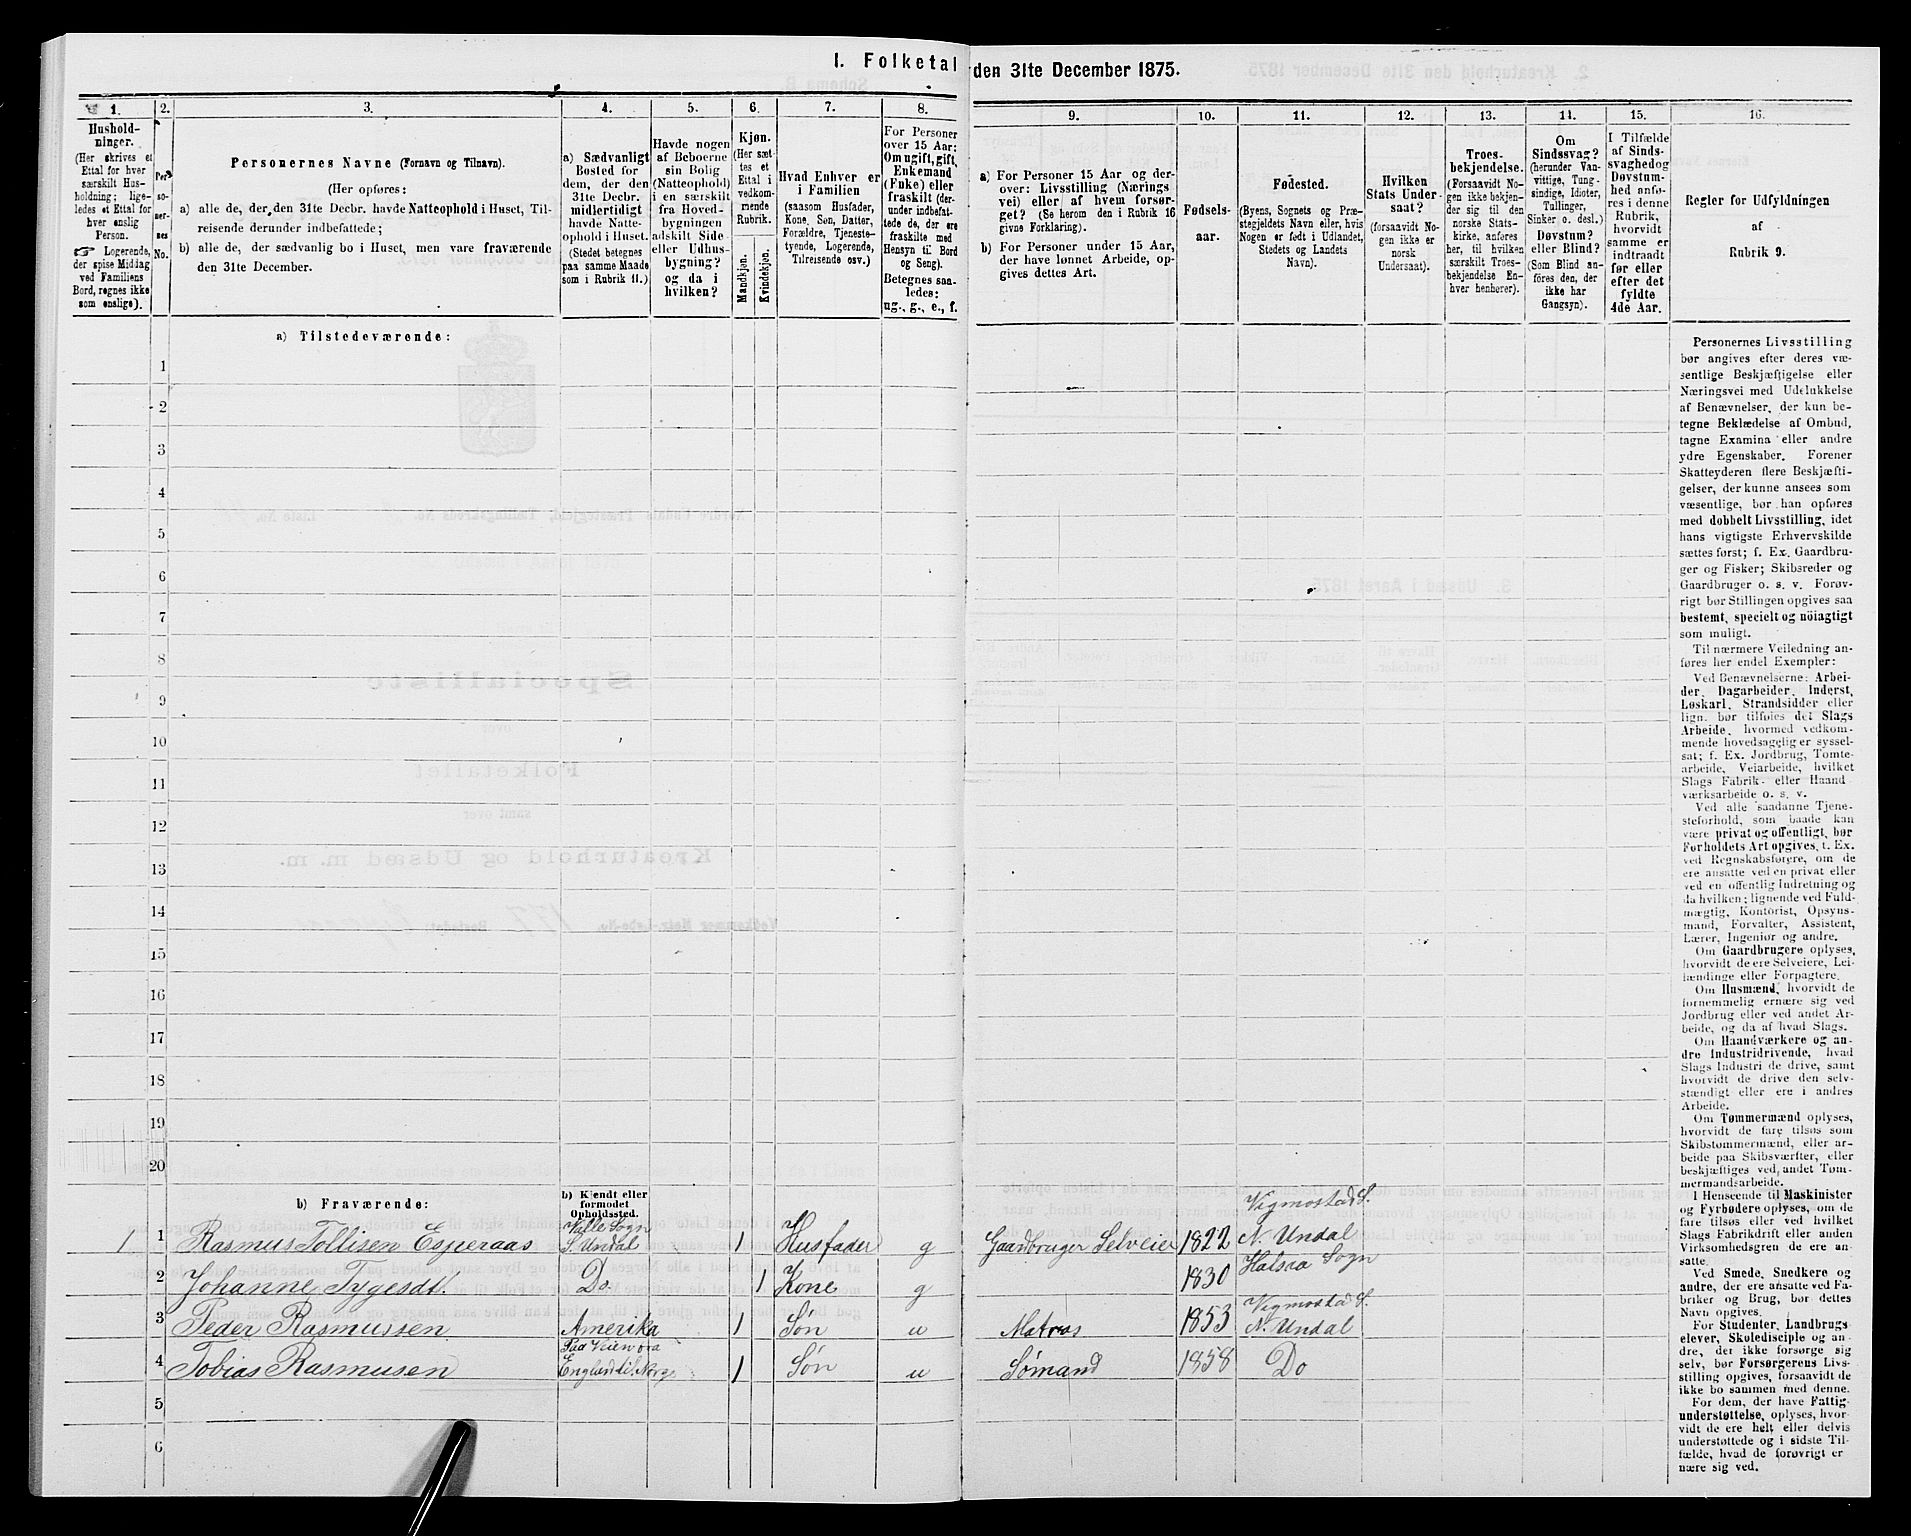 I. Folketal den 31te December 1875.
1.
Hushold-
ninger.
(Her skrives et
Ettal for hver
særskilt Hus-
holdning; lige-
ledes et Ettal for
hver enslig
Person.
☞ Logerende,
der spise Middag
ved Familiens
Bord, regnes ikke
som enslige).
2.
Per-
so-
ner-
nes
No.
3.
Personernes Navne (Fornavn og Tilnavn).
(Her opføres:
a) alle de, der, den 31te Decbr. havde Natteophold i Huset, Til-
reisende derunder indbefattede;
b) alle de, der sædvanlig bo i Huset, men vare fraværende
den 31te December.
4.
a) Sædvanligt
Bosted for
dem, der den
31te Decbr.
midlertidigt
havde Natte-
ophold i Huset.
(Stedet betegnes
paa samme Maade
som i Rubrik 11.)
5.
Havde nogen
af Beboerne
sin Bolig
(Natteophold)
i en særskilt
fra Hoved-
bygningen
adskilt Side
eller Udhus-
bygning?
og da i
hvilken?
6.
Kjøn.
(Her sæt-
tes et
Ettal i
vedkom-
mende
Rubrik.
Mandkjøn.
Kvindekjøn.
7.
Hvad Enhver er
i Familien
(saasom Husfader,
Kone, Søn, Datter,
Forældre, Tjeneste-
tyende, Logerende,
Tilreisende osv.)
8.
For Personer
over 15 Aar:
Om ugift, gift,
Enkemand
(Enke) eller
fraskilt (der-
under indbefat-
tede de, der ere
fraskilte med
Hensyn til Bord
og Seng).
Betegnes saa-
ledes:
ug., g., e., f.
9.
a) For Personer 15 Aar og der-
over: Livsstilling (Nærings
vei) eller af hvem forsør-
get? (Se herom den i Rubrik 16
givne Forklaring).
b) For Personer under 15 Aar,
der have lønnet Arbeide, op-
gives dettes Art.
10.
Fødsels-
aar.
11.
Fødested.
(Byens, Sognets og Præ-
stegjeldets Navn eller, hvis
Nogen er født i Udlandet,
Stedets og Landets
Navn).
12.
Hvilken
Stats Under-
saat?
(forsaavidt No-
gen ikke er
norsk
Undersaat).
13.
Troes-
bekjendelse.
(Forsaavidt No-
gen ikke bekjen-
der sig til den
norske Stats-
kirke, anføres
her, til hvilken
særskilt Troes-
bekjendelse En-
hver henhører).
14.
Om
Sindssvag?
(herunder Van-
vittige, Tung-
sindige, Idioter,
Tullinger,
Sinker o. desl.)
Døvstum?
eller Blind?
(Som Blind an-
føres den, der
ikke har
Gangsyn).
15.
I Tilfælde
af Sinds-
svaghed og
Døvstum-
hed anfø-
res i denne
Rubrik,
hvorvidt
samme er
indtraadt
før eller
efter det
fyldte
4de Aar.
16.
Regler for Udfyldningen
af
Rubrik 9.
a) Tilstedeværende:
1
2
3
4
5
6
7
8
9
10
11
12
13
14
15
16
17
18
19
20
b) Fraværende:
b) Kjendt eller
formodet
Opholdssted.
1 1 Rasmus Tollisen Esperaas Valle Sogn S. Undal 1 Husfader g Gaardbruger Selveier 1822 Vigmostad S. N. Undal
2 Johanne Tygesdt. Do. 1 Kone g 1830 Halsaa Sogn
3 Peder Rasmussen Amerika 1 Søn u Matros 1853 Vigmostad S. N. Undal
4 Tobias Rasmusen Paa Veien fra England til Norge 1 Søn u Sømand 1858 Do
5
6
Personernes Livsstilling
bør angives efter deres væ-
sentlige Beskjæftigelse eller
Næringsvei med Udelukkelse
af Benævnelser, der kun be-
tegne Beklædelse af Ombud,
tagne Examina eller andre
ydre Egenskaber. Forener
Skatteyderen flere Beskjæfti-
gelser, der kunne ansees som
væsentlige, bør han opføres
med dobbelt Livsstilling, idet
hans vigtigste Erhvervskilde
sættes først; f. Ex. Gaardbru-
ger og Fisker; Skibsreder og
Gaardbruger o. s. v. Forøv-
rigt bør Stillingen opgives saa
bestemt, specielt og nöiagtigt
som muligt.
Til nærmere Veiledning an-
føres her endel Exempler:
Ved Benævnelserne: Arbei-
der, Dagarbeider, Inderst,
Løskarl, Strandsidder eller
lign. bør tilføies det Slags
Arbeide, hvormed vedkom-
mende hovedsagelig er syssel-
sat; f. Ex. Jordbrug, Tomte-
arbeide, Veiarbeide, hvilket
Slags Fabrik- eller Haand
værksarbeide o. s. v.
Ved alle saadanne Tjene-
steforhold, som baade kan
være privat og offentligt, bør
Forholdets Art opgives, f. Ex.
ved Regnskabsførere, om de
ere ansatte ved en privat eller
ved en offentlig Indretning og
da hvilken; lignende ved Fuld-
mægtig, Kontorist, Opsyns-
mand, Forvalter, Assistent,
Lærer, Ingeniør og andre.
Om Gaardbrugere oplyses,
hvorvidt de ere Selveiere, Lei-
lændinge eller Forpagtere.
Om Husmænd, hvorvidt de
fornemmelig ernære sig ved
Jordbrug eller ved andet Ar-
beide, og da af hvad Slags.
Om Haandværkere og an-
dre Industridrivende, hvad
Slags Industri de drive, samt
hvorvidt de drive den selv-
stændigt eller ere i andres
Arbeide.
Om Tømmermænd oplyses,
hvorvidt de fare tilsøs som
Skibstømmermænd, eller ar-
beide paa Skibsværfter, eller
beskjæftiges ved andet Tøm-
mermandsarbeide.
I Henseende til Maskinister
og Fyrbødere oplyses, om de
fare tilsøs eller ved hvilket
Fabrikdrift eller anden
Virksomhedsgren de ere an-
satte.
Ved Smede, Snedkere og
andre, der ere ansatte ved Fa-
briker og Brug, bør dettes
Navn opgives.
For Studenter, Landbrugs
elever, Skoledisciple og an-
dre, der ikke forsørge sig
selv, bør Forsørgerens Livs-
stilling opgives, forsaavidt de
ikke bo sammen med denne.
For dem, der have Fattig
understøttelse, oplyses, hvor-
vidt de ere helt eller delvis
understøttede og i sidste Til-
fælde, hvad de forøvrigt er
nære sig ved.